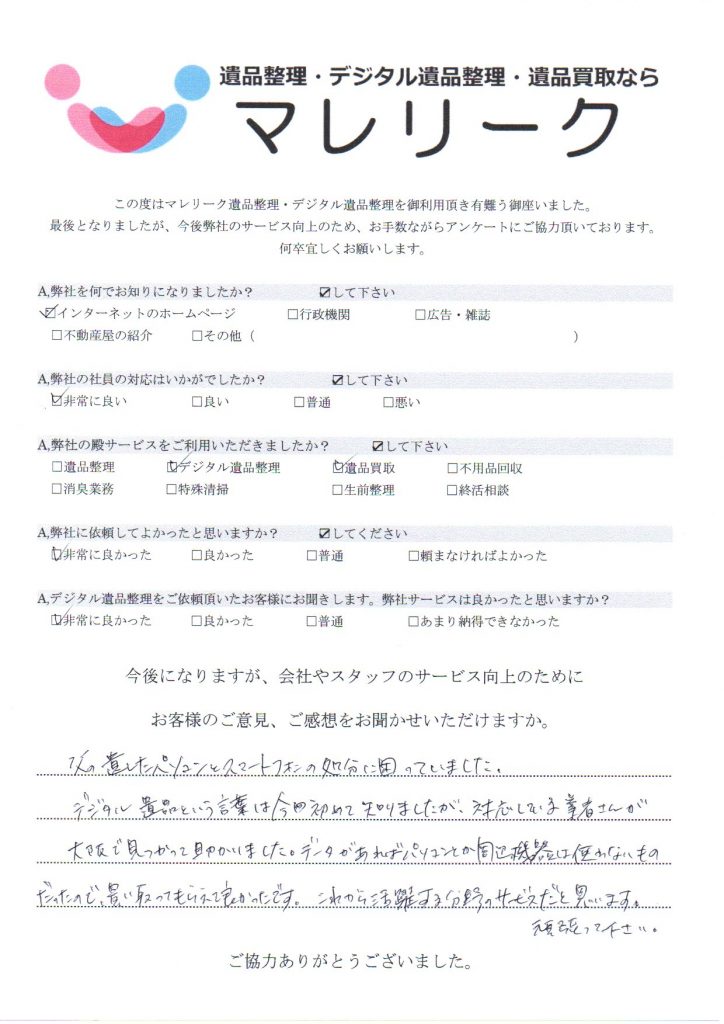 遺品整理・デジタル遺品整理・遺品買取なら
マレリーク
この度はマレリーク遺品整理・デジタル遺品整理を御利用頂き有難う御座いました。
最後となりましたが、今後弊社のサービス向上のため、お手数ながらアンケートにご協力頂いております。
何卒宜しくお願いします。
A,弊社を何でお知りになりましたか？ ☑して下さい
☑インターネットのホームページ □行政機関 □広告・雑誌
□不動産屋の紹介 □その他（ ）
A,弊社の社員の対応はいかがでしたか？ ☑して下さい
☑非常に良い □良い □普通 □悪い
A,弊社の殿サービスをご利用いただきましたか？ ☑して下さい
□遺品整理 ☑デジタル遺品整理 ☑遺品買取 □不用品回収
□消臭業務 □特殊清掃 □生前整理 □終活相談
A,弊社に依頼してよかったと思いますか？ ☑してください
☑非常に良かった □良かった □普通 □頼まなければよかった
A,デジタル遺品整理をご依頼頂いたお客様にお聞きします。弊社サービスは良かったと思いますか？
☑非常に良かった □良かった □普通 □あまり納得できなかった
今後になりますが、会社やスタッフのサービス向上のために
お客様のご意見、ご感想をお聞かせいただけますか。
の遺したパソコンとスマートフォンの処分に困っていました。
デジタル遺品という言葉は今回初めて知りましたが、対応している業者さんが
大阪で見つかって助かいました。データがあればパソコンとか周辺機器は使わないもの
だったので、買い取ってもらえて良かったです。これから活躍する分野のサービスだと思います。
頑張って下さい。
ご協力ありがとうございました。